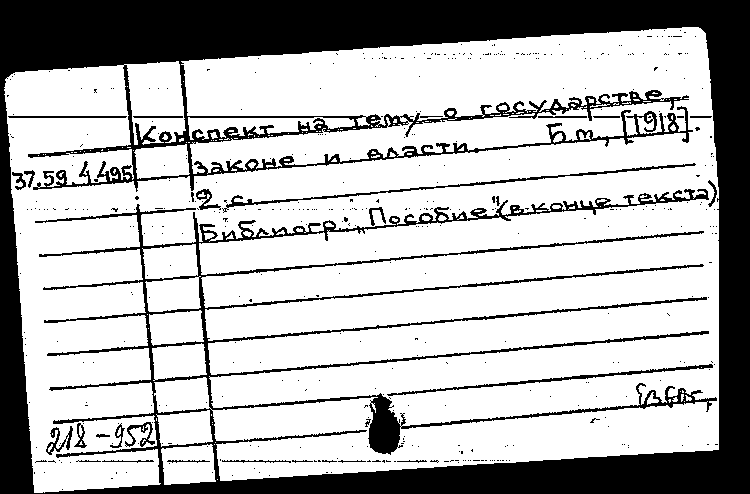 Конспект на тему о государстве,
37.59.4.495 законе и власти. Б.м., [1918].
2 с.
Библиогр.: „Пособие" (в конце текста)
218-952